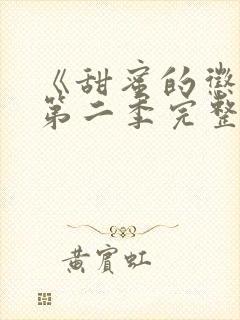 《甜蜜的惩
第二季完整
黄宾虹